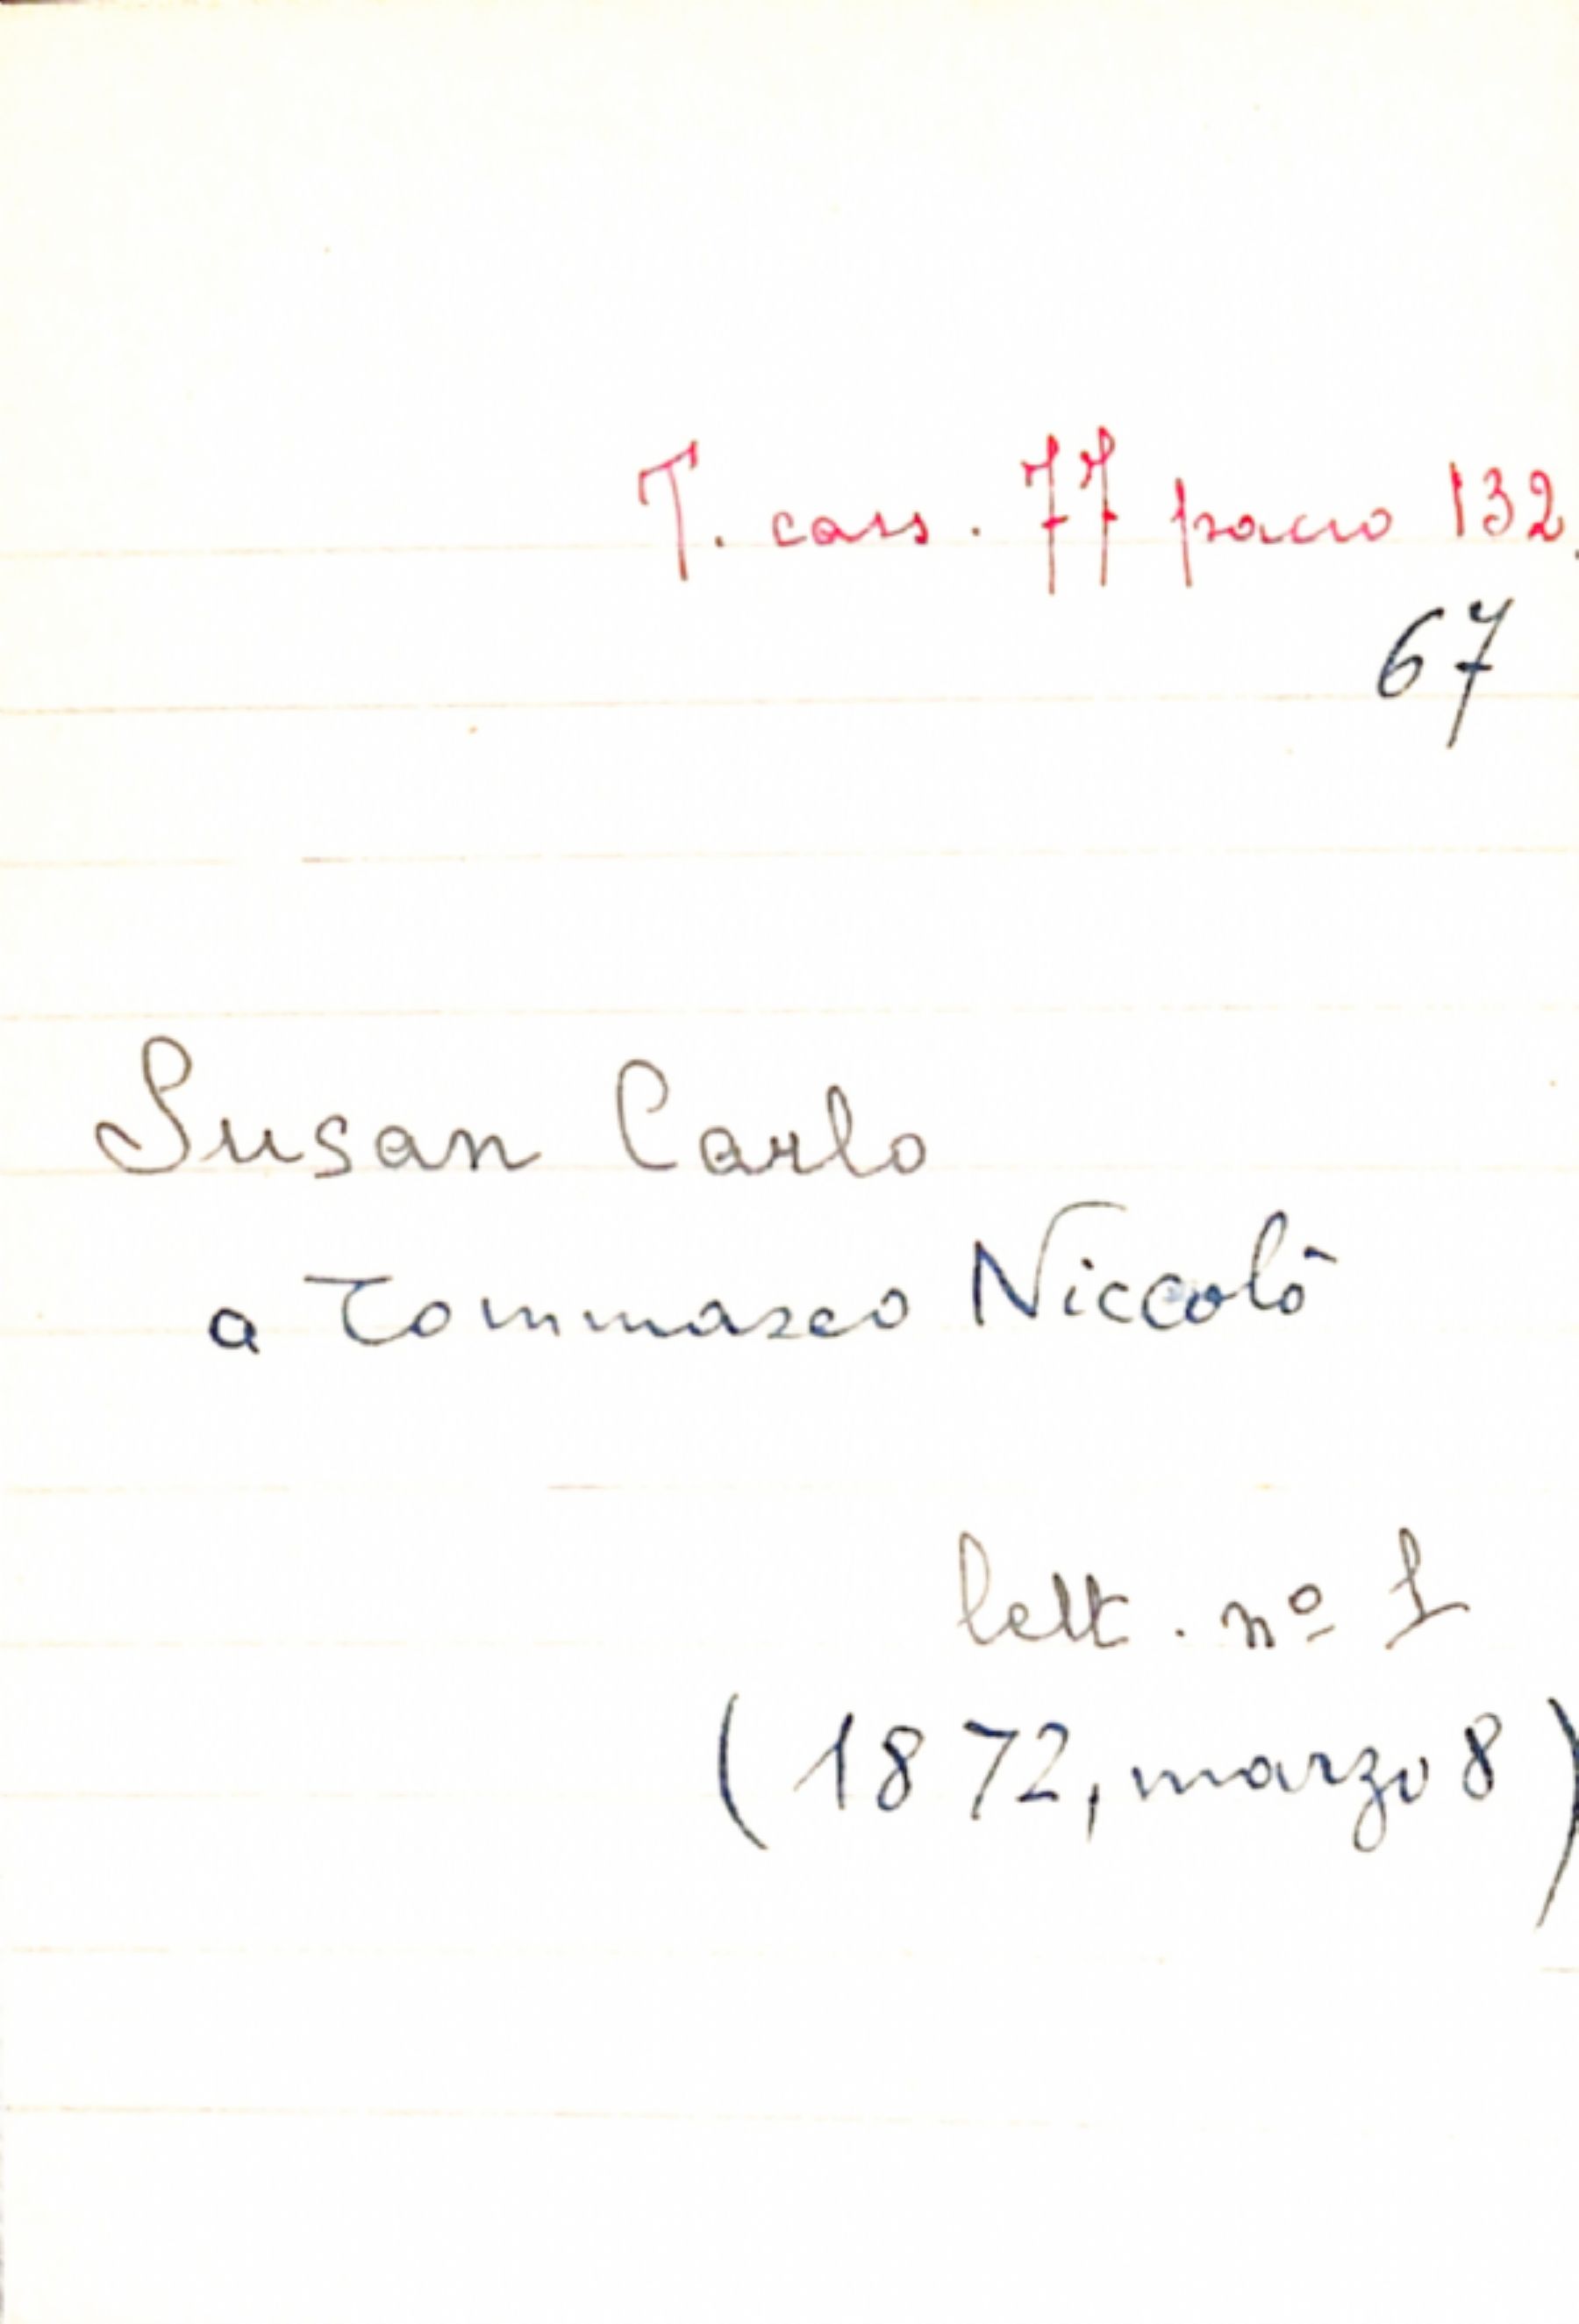 T. cass. 77 pacco 132.
67
Susan Carlo
a Tommaseo Niccolò
lett. nº 1
(1872, marzo 8)